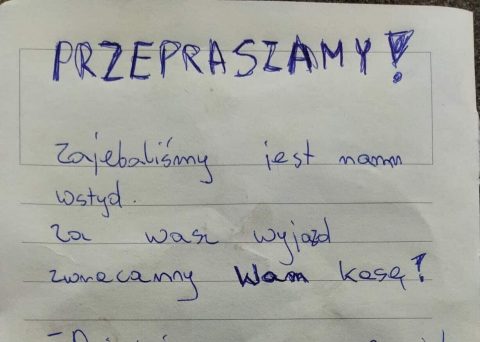 PRZEPRASZAMY!
Zajebaliśmy jest nam
wstyd.
Za wasz wyjazd
zwracamy Wam kasę!